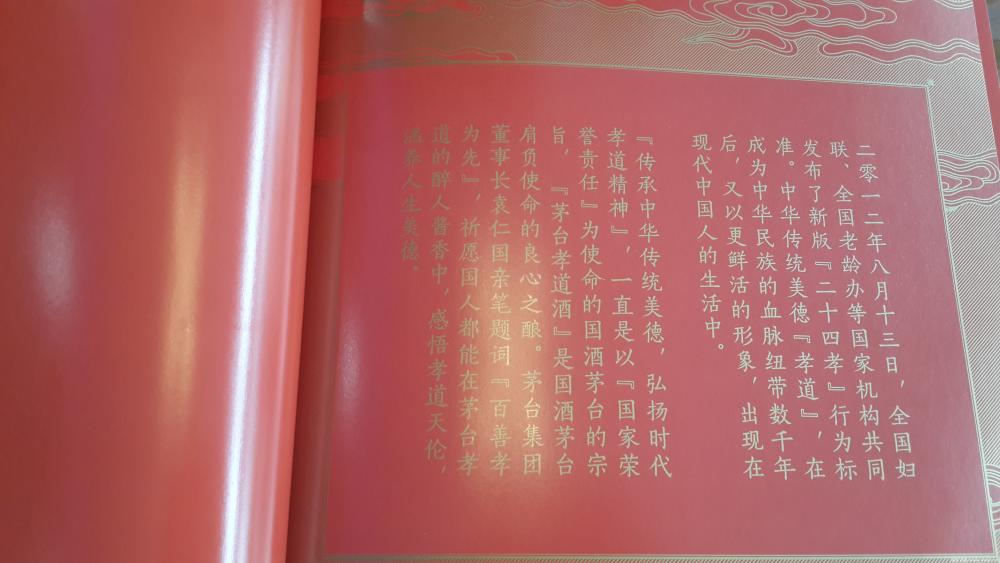 二零一二年八月十三日，全国妇
联、全国老龄办等国家机构共同
发布了新版『二十四孝』行为标
准。中华传统美德『孝道』，在
成为中华民族的血脉纽带数千年
后，又以更鲜活的形象，出现在
现代中国人的生活中。
『传承中华传统美德，弘扬时代
孝道精神』，一直是以『国家荣
誉责任』为使命的国酒茅台的宗
旨，『茅台孝道酒』是国酒茅台
肩负使命的良心之酿。茅台集团
董事长袁仁国亲笔题词『百善孝
为先』，祈愿国人都能在茅台孝
道的醉人酱香中，感悟孝道天伦，
涵养人生美德。